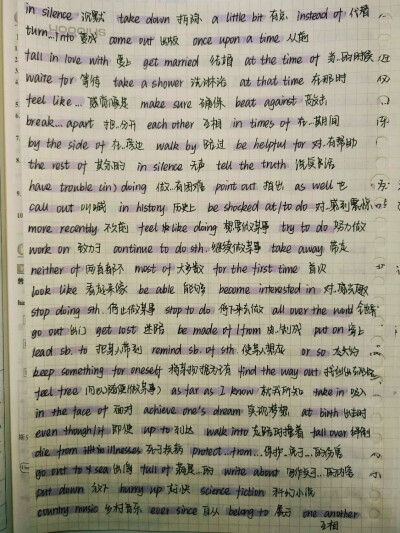 in silence 沉默 take down 拆除 a little bit 有点 instead of 代替
turn...into 变成 come out 出版 once upon a time 从前
fall in love with 爱上 get married 结婚 at the time of 当...的时候
waite for 等待 take a shower 洗淋浴 at that time 在那时
feel like... 感觉像是 make sure 确保 beat against 敲击
break...apart 把...分开 each other 互相 in times of 在...期间
by the side of 在...旁边 walk by 路过 be helpful for 对...有帮助
the rest of 其余的 in silence 无声 tell the truth 说实话
have trouble (in) doing 做...有困难 point out 指出 as well 也
call out 叫喊 in history 历史上 be shocked at/to do 对...感到震惊
more recently 不久前 feel like doing 想要做某事 try to do 努力做
work on 致力于 continue to do sth. 继续做某事 take away 带走
neither of 两者都不 most of 大多数 for the first time 首次
look like 看起来像 be able 能够 become interested in 对...感兴趣
stop doing sth. 停止做某事 stop to do 停下来去做 all over the world 全世界
go out 出门 get lost 迷路 be made of / from 由...制成 put on 穿上
lead sb. to 把某人带到 remind sb. of sth. 使某人想起 or so 大约
keep something for oneself find the way out
feel free (可以)随便(做某事) as far as I know 就我所知 take in 吸入
in the face of 面对 achieve one's dream 实现梦想 at birth 出生时
even though/if 即使 up to 到达 walk into fall over 绊倒
die from illnesses 死于疾病 protect...from... 保护...免于...的伤害
go out to sea 出海 full of 满是...的 write about
put down 放下 hurry up 赶快 science fiction 科幻小说
country music 乡村音乐 ever since 自从 belong to 属于 one another
互相